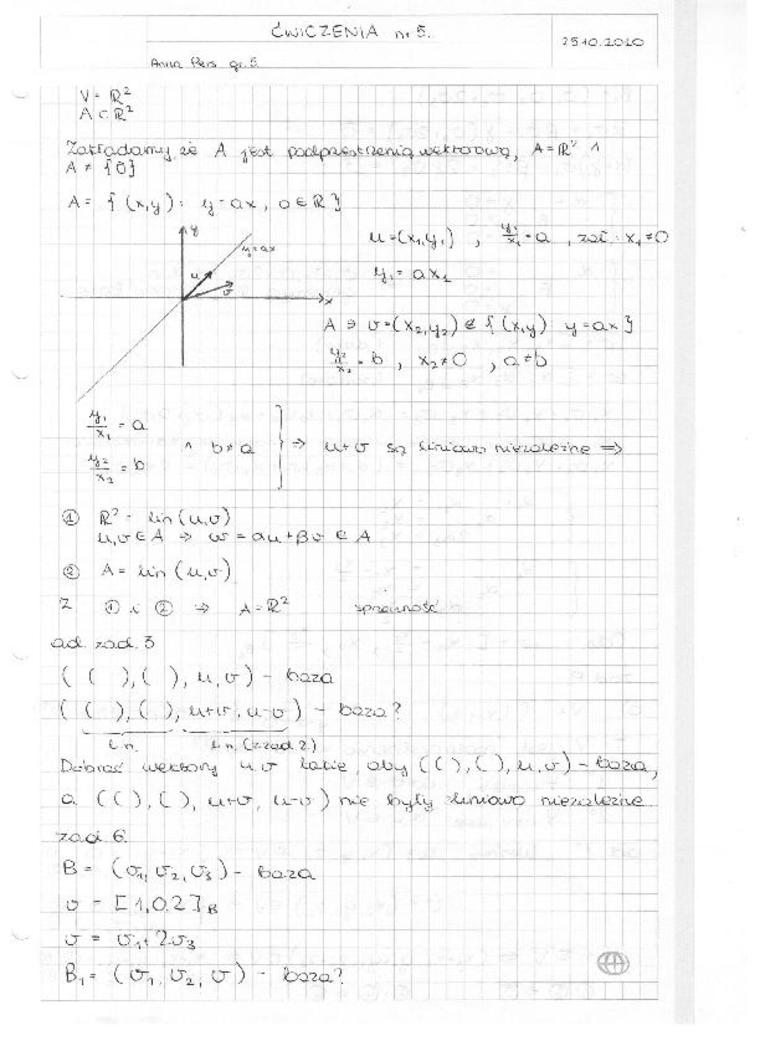 ĆWICZENIA nr 5.
25.10.2010
Anna gr. 5
V = ℝ²
A ⊂ ℝ²
Zakładamy, że A jest podprzestrzenią wektorową, A = ℝ² ∧
A ≠ {0}
A = { (x,y) : y = ax, a ∈ ℝ }
y
y = ax
u
v
x
u = (x₁, y₁) , y₁/x₁ = a , zał : x₁ ≠ 0
y₁ = ax₁
A ∋ v = (x₂, y₂) ∉ { (x,y) y = ax }
y₂/x₂ = b , x₂ ≠ 0 , a ≠ b
y₁/x₁ = a
∧ b ≠ a } ⇒ u + v są liniowo niezależne ⇒
y₂/x₂ = b
① ℝ² = lin (u, v)
u, v ∈ A ⇒ w = αu + βv ∈ A
② A = lin (u, v)
Z ① i ② ⇒ A = ℝ² sprzeczność
ad. zad. 3
( ( ), ( ), u, v ) - baza
( ( ), ( ), u+v, u-v ) - baza?
l.n. l.n. (z zad. 2.)
Dobrać wektory u, v takie, aby (( ), ( ), u, v) - baza,
a (( ), ( ), u+v, u-v) nie były liniowo niezależne.
zad. 6.
B = (v₁, v₂, v₃) - baza
v = [1,0,2]_B
v = v₁ + 2v₃
B₁ = (v₁, v₂, v) - baza?